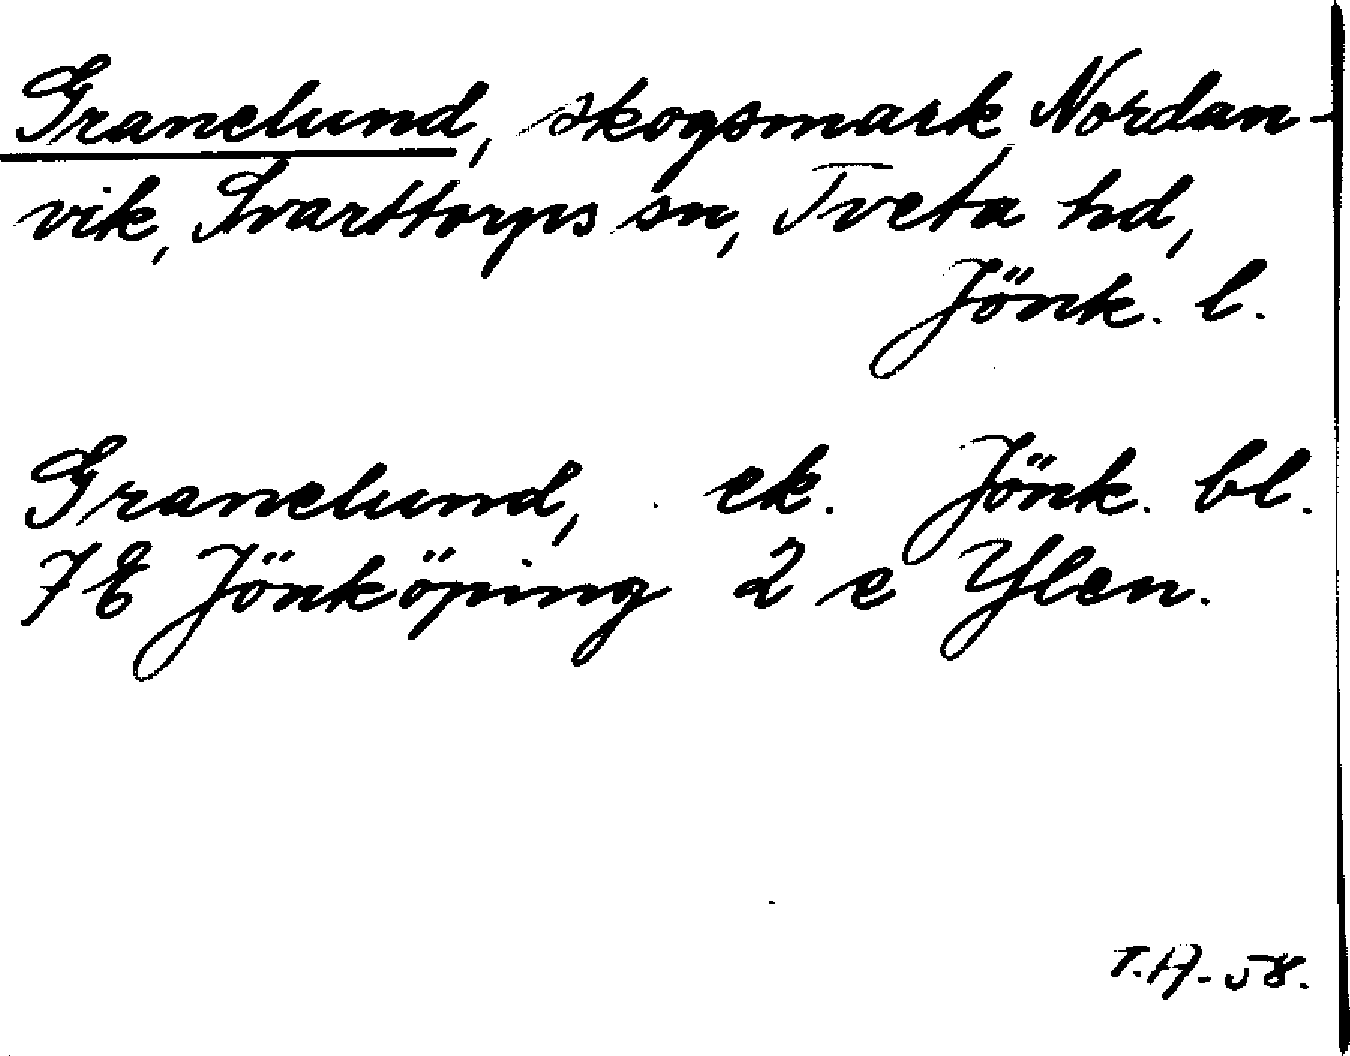 Granelund, skogsmark Nordan-
vik, Svarttorps sn, Tveta hd,
Jönk. l.
Granelund, ek. Jönk. bl.
7E Jönköping 2 e Ylen.
T.A. 58.